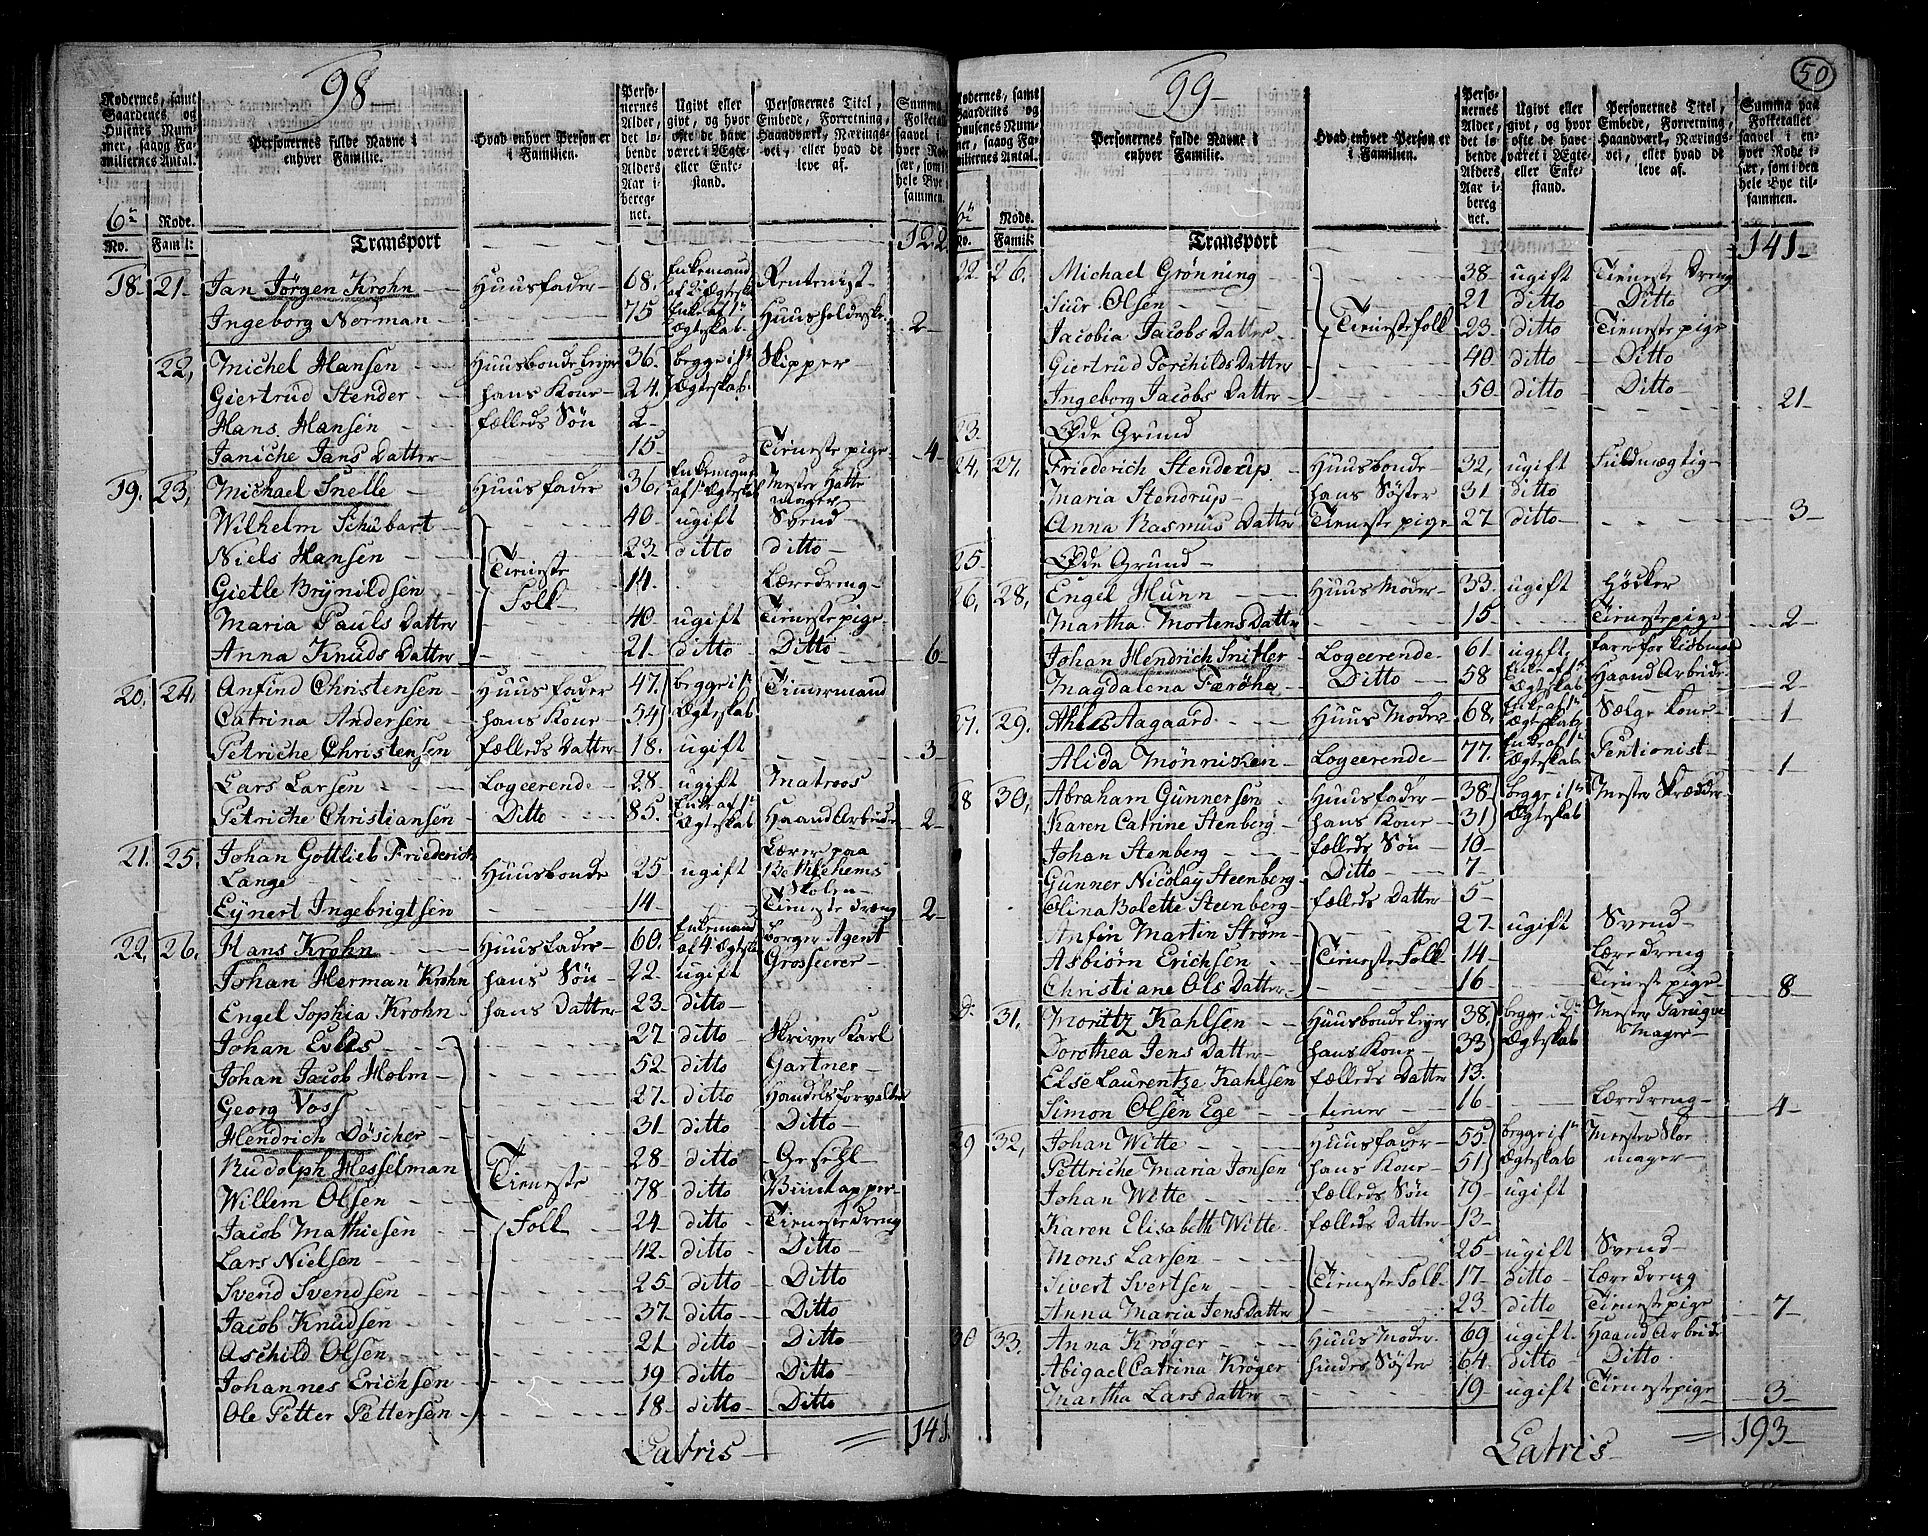 98
Rodernes, samt Gaardenes og Husenes Nummer, saaog Familiernes Antal.
Personernes fulde Navne i enhver Familie.
Hvad enhver Person er i Familien.
Personernes Alder, det løbende Alders Aar iberegnet.
Ugivt eller givt, og hvor ofte de have været i Ægte- eller Enkestand.
Personernes Titel, Embede, Forretning, Haandværk, Næringsvei, eller hvad de leve af.
Summa Folketallet saavel i hver Rode især, som i hele Bye sammen.
6te Rode.
No. Famil:
Transport 122
18. 21. Jan Jörgen Krohn Huusfader 68. Enkemand af 2det Ægtesk. Rentenist
Ingeborg Norman 75 Enke af 1te Ægteskab. Huusholderske 2
22, Michel Hansen Huusbonde Leyer 36. begge i 1te Ægteskab. Skipper
Giertrud Stender hans Kone 24.
Hans Hansen fælleds Søn 2
Janiche Jans Datter 15 Tieneste pige 4
19. 23, Michael Snelle Huusfader 36, Enkemand af 1te Ægtesk. Mester Hatte mager
Wilhelm Schubart 40 ugift Svend
Niels Hansen Tieneste 23 ditto ditto
Gietle Brÿnildsen Folk 14. Læredreng
Maria Pauls Datter 40 ugift Tieneste pige
Anna Knuds Datter 21. ditto Ditto 6
20, 24, Anfind Christensen Huusfader 47. begge i 1te Ægteskab Timmermand
Catrina Andersen hans Kone 54
Petriche Christensen fælleds Datter 18. ugift 3
Lars Larsen Logeerende 28. ugift Matroos
Petriche Christiansen Ditto 85. Enke af 1te Ægteskab Haand Arbeide 2
21. 25. Johan Gottlieb Friederich
Lange Huusbonde 25 ugift Lærer paa Skolen
Eÿnert Ingebrigtsen 14 Tieneste dreng 2
22, 26. Hans Krohn Huusfader 60. Enkemand af 4 Ægtesk Borger Agent Grosseerer
Johan Herman Krohn hans Søn 22 ugift
Engel Sophia Krohn hans Datter 23. ditto
Johan Evers 27 ditto Skriver Karl
Johan Jacob Holm 52 ditto Gartner
Georg Voss 27. ditto Handels Forvalter
Hendrich Döscher 31 ditto Ditto
Rudolph Hesselman Tieneste 28 ditto Gesell
Willem Olsen 78 ditto
Jacob Mathiesen Folk 24 ditto Tienestedreng
Lars Nielsen 42 ditto Ditto
Svend Svendsen 25 ditto Ditto
Jacob Knudsen 37 ditto Ditto
Aschild Olsen 21 ditto Ditto
Johannes Erichsen 19 ditto Ditto
Ole Petter Pettersen 18 ditto Ditto
Latris 141
50
99
Rodernes, samt Gaardenes og Husenes Nummer, saaog Familiernes Antal.
Personernes fulde Navne i enhver Familie.
Hvad enhver Person er i Familien.
Personernes Alder, det løbende Alders Aar iberegnet.
Ugivt eller givt, og hvor ofte de have været i Ægte- eller Enkestand.
Personernes Titel, Embede, Forretning, Haandværk, Næringsvei, eller hvad de leve af.
Summa paa Folketallet saavel i enhver Rode især, som i den hele Bye tilsammen.
6te Rode.
No. Famil:
Transport 141
22. 26. Michael Grönning 38 ugift Tieneste Dreng
Siur Olsen 21 ditto Ditto
Jacobia Jacobs Datter Tieneste folk 23 ditto Tieneste pige
Giertrud Torchilds Datter 40 ditto Ditto
Ingeborg Jacobs Datter 50 ditto Ditto 21
23. Øde Grund
24, 27. Friederich Stenderup Huusbonde 32, ugift Fuldmægtig
Maria Stendrup hans Søster 31 ditto
Anna Rasmus Datter Tieneste pige 27 ditto 3
25. Øde Grund
26, 28, Engel Munn Huus Moder 33. ugift Höcker
Martha Mortens Datter 15 Tieneste pige 2
Johan Hendrich Snitler Logeerende 61 ugift
Magdalena Færöhn Ditto 58 Enke af 1te Ægteskab Haand Arbeide 2
27. 29. Ahles Aagaard Huus Moder 68, Enke af 1te Ægteskab Sælge Kone 1
Alida Mønniken Logeerende 77. Enke af 1te Ægteskab Pentionist 1
28 30, Abraham Gunnersen Huusfader 38 begge i 1te Ægteskab Mester Skrædder
Karen Catrine Stenberg hans Kone 31
Johan Stenberg fælleds Søn 10
Gunner Nicolaÿ Steenberg Ditto 7
Olina Bolette Steenberg fælleds Datter 5
Anfin Martin Ström 27 ugift Svend
Asbiörn Erichsen Tieneste Folk 14 Læredreng
Christiane Ols Datter 16 Tieneste pige 8
31. Moritz Kahlsen Huusbonde Leyer 38. begge i 2det Ægteskab Mester Parüque Mager
Dorothea Jens Datter hans Kone 33
Else Laurentze Kahlsen fælleds Datter 13.
Simon Olsen Ege tiener 16 Læredreng 4
29 32, Johan Witte Huusfader 55 begge i 1te Ægteskab Mester Skomager
Pettriche Maria Jonsen hans Kone 51
Johan Witte fælleds Søn 19 ugift
Karen Elisabeth Witte fælleds Datter 13
Mons Larsen 25 ugift Svend
Sivert Svertsen Tieneste Folk 17 ditto Læredreng
Anna Maria Jens Datter 23 ditto Tieneste pige 7
30 33. Anna Kröger Huus Moder 69 ugift Haand Arbeide
Abigael Catrina Kröger hendes Søster 64. ditto Ditto
Martha Lars datter 19 ugift Tieneste pige 3
Latris 193